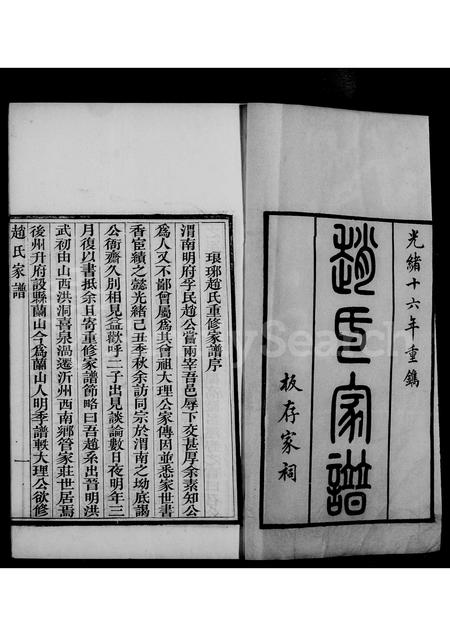 光緒十六年重鐫
趙氏家譜
板存家祠
琅琊趙氏重修家譜序
渭南明府孚民趙公嘗兩宰吾邑辱下交甚厚余素知公
為人又不鄙曾屬為其曾祖大理公家傳因並悉家世書
香宦績之懿光緒己丑季秋余訪同宗於渭南之坳底謁
公衙齋久別相見益歡呼二子出見談論數日夜明年三
月復以書抵余且寄重修家譜節略曰吾趙系出晉明洪
武初由山西洪洞喜泉渦遷沂州西南鄉管家莊世居焉
後州升府設縣蘭山今為蘭山人明季譜軼大理公欲修
趙氏家譜
一